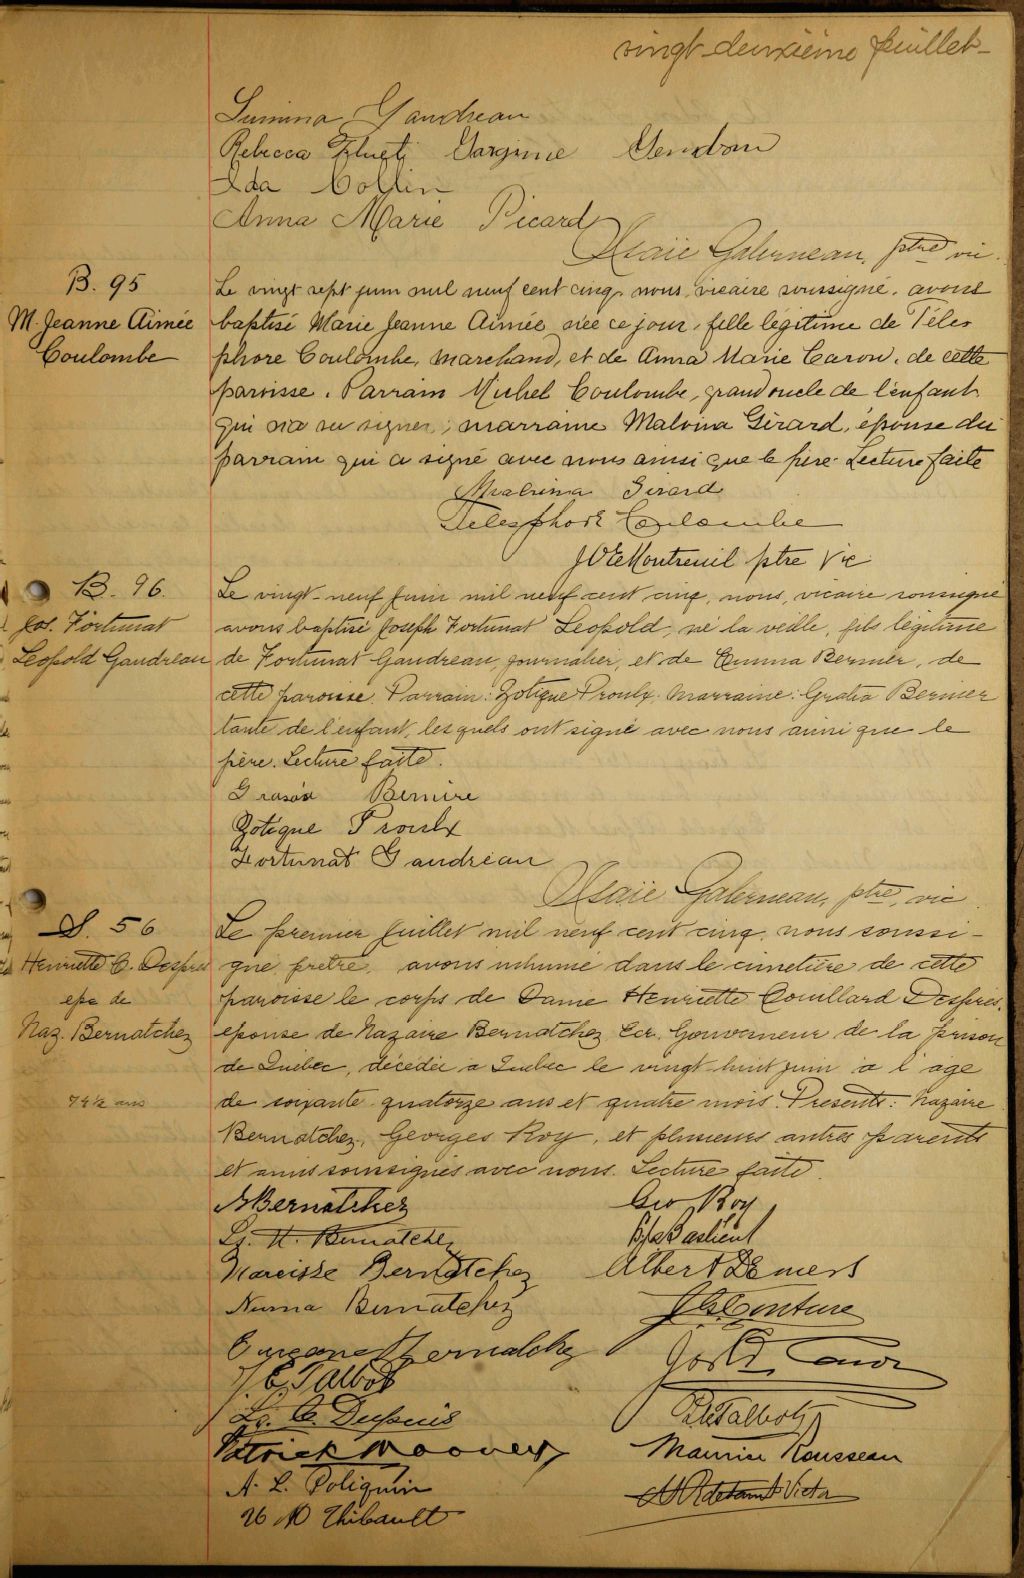 vingt-deuxième feuillet-
Gaudreau
Rebecca Gendron
Ida Collin
Anna Marie Picard
Isaïe Galerneau, ptre vic.
B. 95
M. Jeanne Aimée
Coulombe
Le vingt sept juin mil neuf cent cinq, nous, vicaire soussigné, avons
baptisé Marie Jeanne Aimée née ce jour, fille légitime de Téles
phore Coulombe, marchand, et de Anna Marie Caron, de cette
paroisse. Parrain Michel Coulombe, grand oncle de l'enfant
qui n'a su signer; marraine Malvina Girard, épouse du
parrain qui a signé avec nous ainsi que le père. Lecture faite
Malvina Girard
Telesphore Coulombe
Montreuil ptre Vic
B. 96.
Jos. Fortunat
Léopold Gaudreau
Le vingt-neuf juin mil neuf cent cinq, nous, vicaire soussigné
avons baptisé Joseph Fortunat Léopold, né la veille, fils légitime
de Fortunat Gaudreau, journalier, et de Emma Bernier, de
cette paroisse. Parrain: Zotique Proulx. Marraine: Gratia Bernier
tante de l'enfant, lesquels ont signé avec nous ainsi que le
père. Lecture faite.
Bernire
Zotique Proulx
Fortunat Gaudreau
Isaïe Galerneau, ptre, vic
S. 56
Henriette C. Despres
epse de
Naz. Bernatchez
74½ ans
Le premier Juillet mil neuf cent cinq, nous soussi-
gné prêtre, avons inhumé dans le cimetière de cette
paroisse le corps de Dame Henriette Couillard Després,
epouse de Nazaire Bernatchez Ecr. Gouverneur de la prison
de Québec, décédée à Quebec le vingt-huit juin à l'âge
de soixante-quatorze ans et quatre mois. Presents: Nazaire
Bernatchez, Georges Roy, et plusieurs autres parents
et amis soussignés avec nous. Lecture faite.
N Bernatchez Geo Roy
Bernatchez Bastient
Narcisse Bernatchez Albert DEmers
Numa Bernatchez Couture
Bernatchez Caron
Talbot Talbot
Ls. C. Dupuis
Patrick Maurice Rousseau
A. L. Poliquin
Thibault